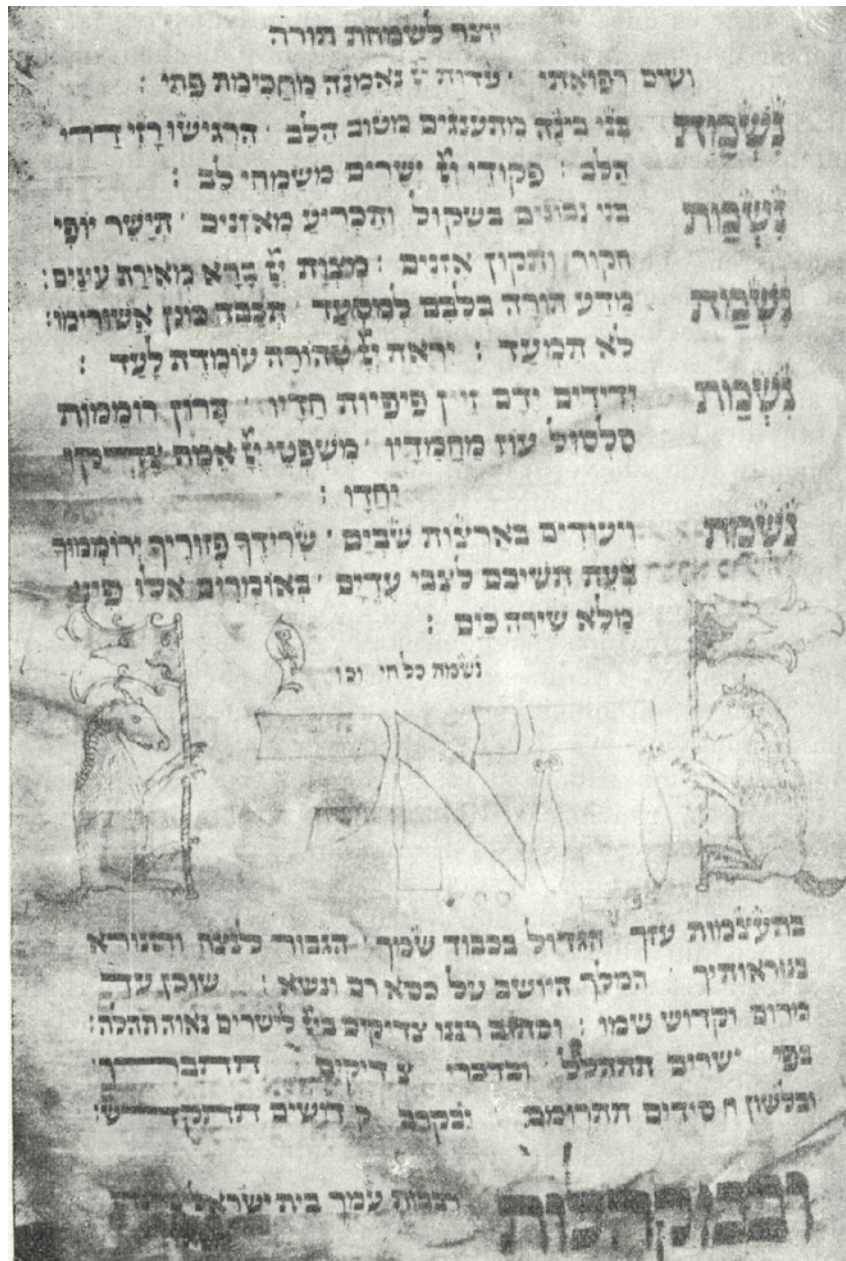 יוצר לשמחת תורה
ושים רפואתי עדות נאמנה מחכימת פתי :
נשמת בני בינה מתענגים מטוב הלב הרגישו רזי דרי
הלב : פקודי ישרים משמחי לב :
נשמת בני נבונים בשקול והכריע מאזנים תישר יופי
חקור ותקון אזנים : מצות ברא מאירת עינים :
נשמת מדע תורה בלבם למסעד תכבד מגן אשורימו
לא תמעד : יראה טהורה עומדת לעד :
נשמת ידידים ידם זיין פיפיות חדיו רוממות
סלסול עוז מחמדיו משפטי אמת צדקו
יחדו :
נשמת ויעודים בארצות שבים שרידך פזוריך ירוממוך
בעת תשיבם לצבי עדים באומרום אלו פינו
מלא שירה כים :
נשמת כל חי וכו
האל
בתעצמות עזך הגדול בכבוד שמך הגבור לנצח והנורא
בנוראותיך המלך היושב על כסא רם ונשא : שוכן עד
מרום וקדוש שמו : וכתוב רננו צדיקים בייי לישרים נאוה תהלה :
בפי ישרים תתהלל ובדברי צדיקים תתברך
ובלשון חסידים תתרומם ובקרב קדושים תתקדש :
ובמקהלות רבבות עמך בית ישראל